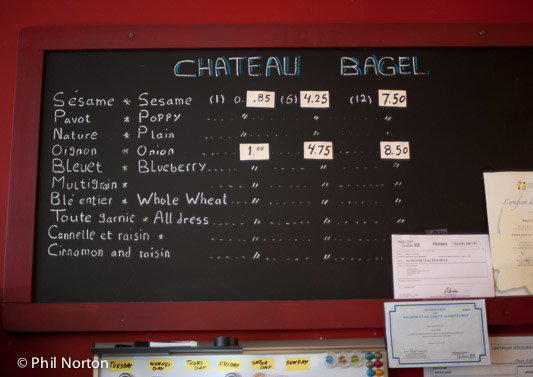 CHATEAU BAGEL
Sésame * Sesame (1) 0. .85 (6) 4.25 (12) 7.50
Pavot * Poppy .... " .... " .... "
Nature * Plain .... " .... " .... "
Oignon * Onion 1.00 4.75 8.50
Bleuet * Blueberry .... " .... " .... "
Multigrain * .... " .... " .... "
Blé entier * Whole Wheat .... " .... " .... "
Toute garnie * All dress .... " .... " .... "
Cannelle et raisin *
Cinnamon and raisin .... " .... " .... "
PERMIS
© Phil Norton
TUESDAY THURSDAY FRIDAY SUNDAY